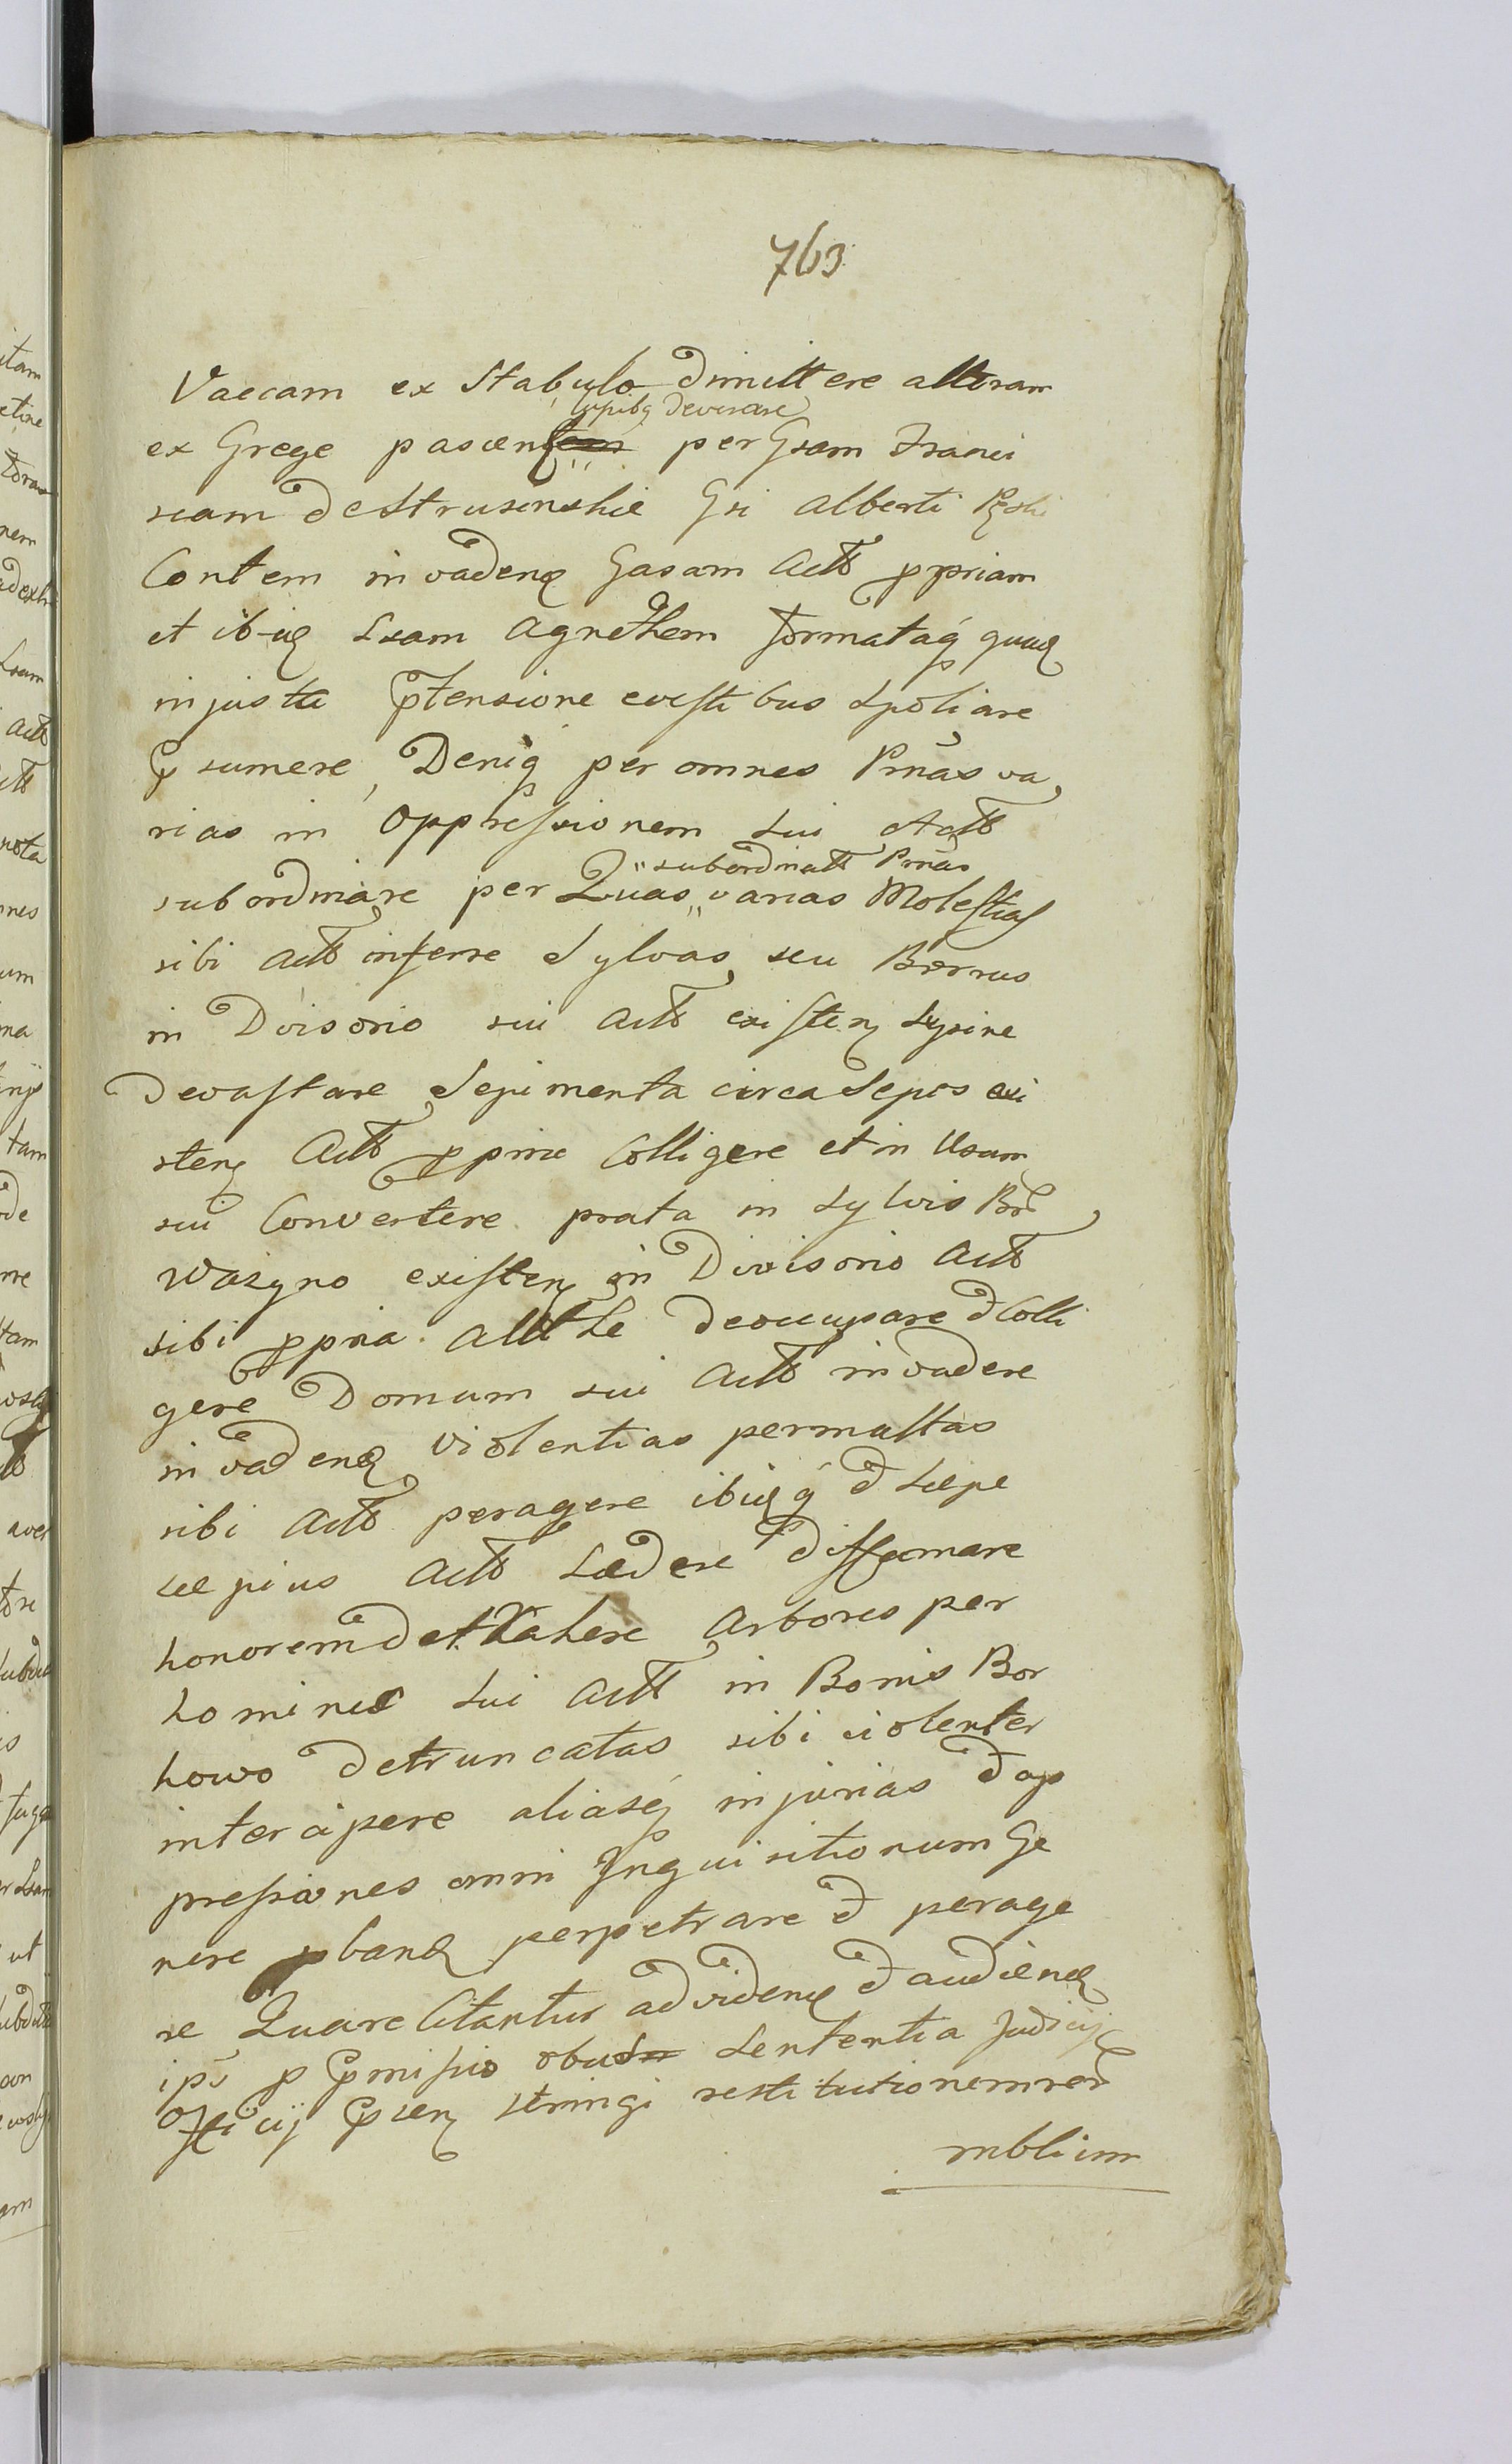 763
Vaccam ex Stabulo dimittere alteram
lupibq devorare
ex Grege pascen per Gsam Franci
scam de Strusinskie Gsi Alberti
Contem invadenq Casam Actt ppriam
et ibiq Lsam Agnethem formataq quaq
injusta ptensione evestibus spoliare
sumere, Deniq per omnes Pmas va
rias in oppressionem sui Actt
subordinatt Pmas
subordinare per Quas varias Molestias
sibi Actt inferre Sylvas seu Borrus
in Divisorio sui Actt existen
Devastare Sepimenta circa Sepes exi
sten Actt pprie Colligere et in Usum
sui Convertere prata in Sylvis Br
wazyno existen in Divisorio Actt
sibi ppria deocupare & Colli
gere Domum sui Actt invadere
invadenq violentias permultas
sibi Actt peragere ibiq & Saepe
saepius Actt Laedere diffamare
honorem detrahere Arbores per
homines sui Actt in Bonis Bor
howo detruncatas sibi violenter
intercipere aliasq injurias & op
pressiones omni Inquisitionum Ge
nere pbanq perpetrare & perage
re Quare Citantur ad videnq & audienq
ips p pmissio Sententia Judicij
Officij psen stringi restitutionem rer
mblium